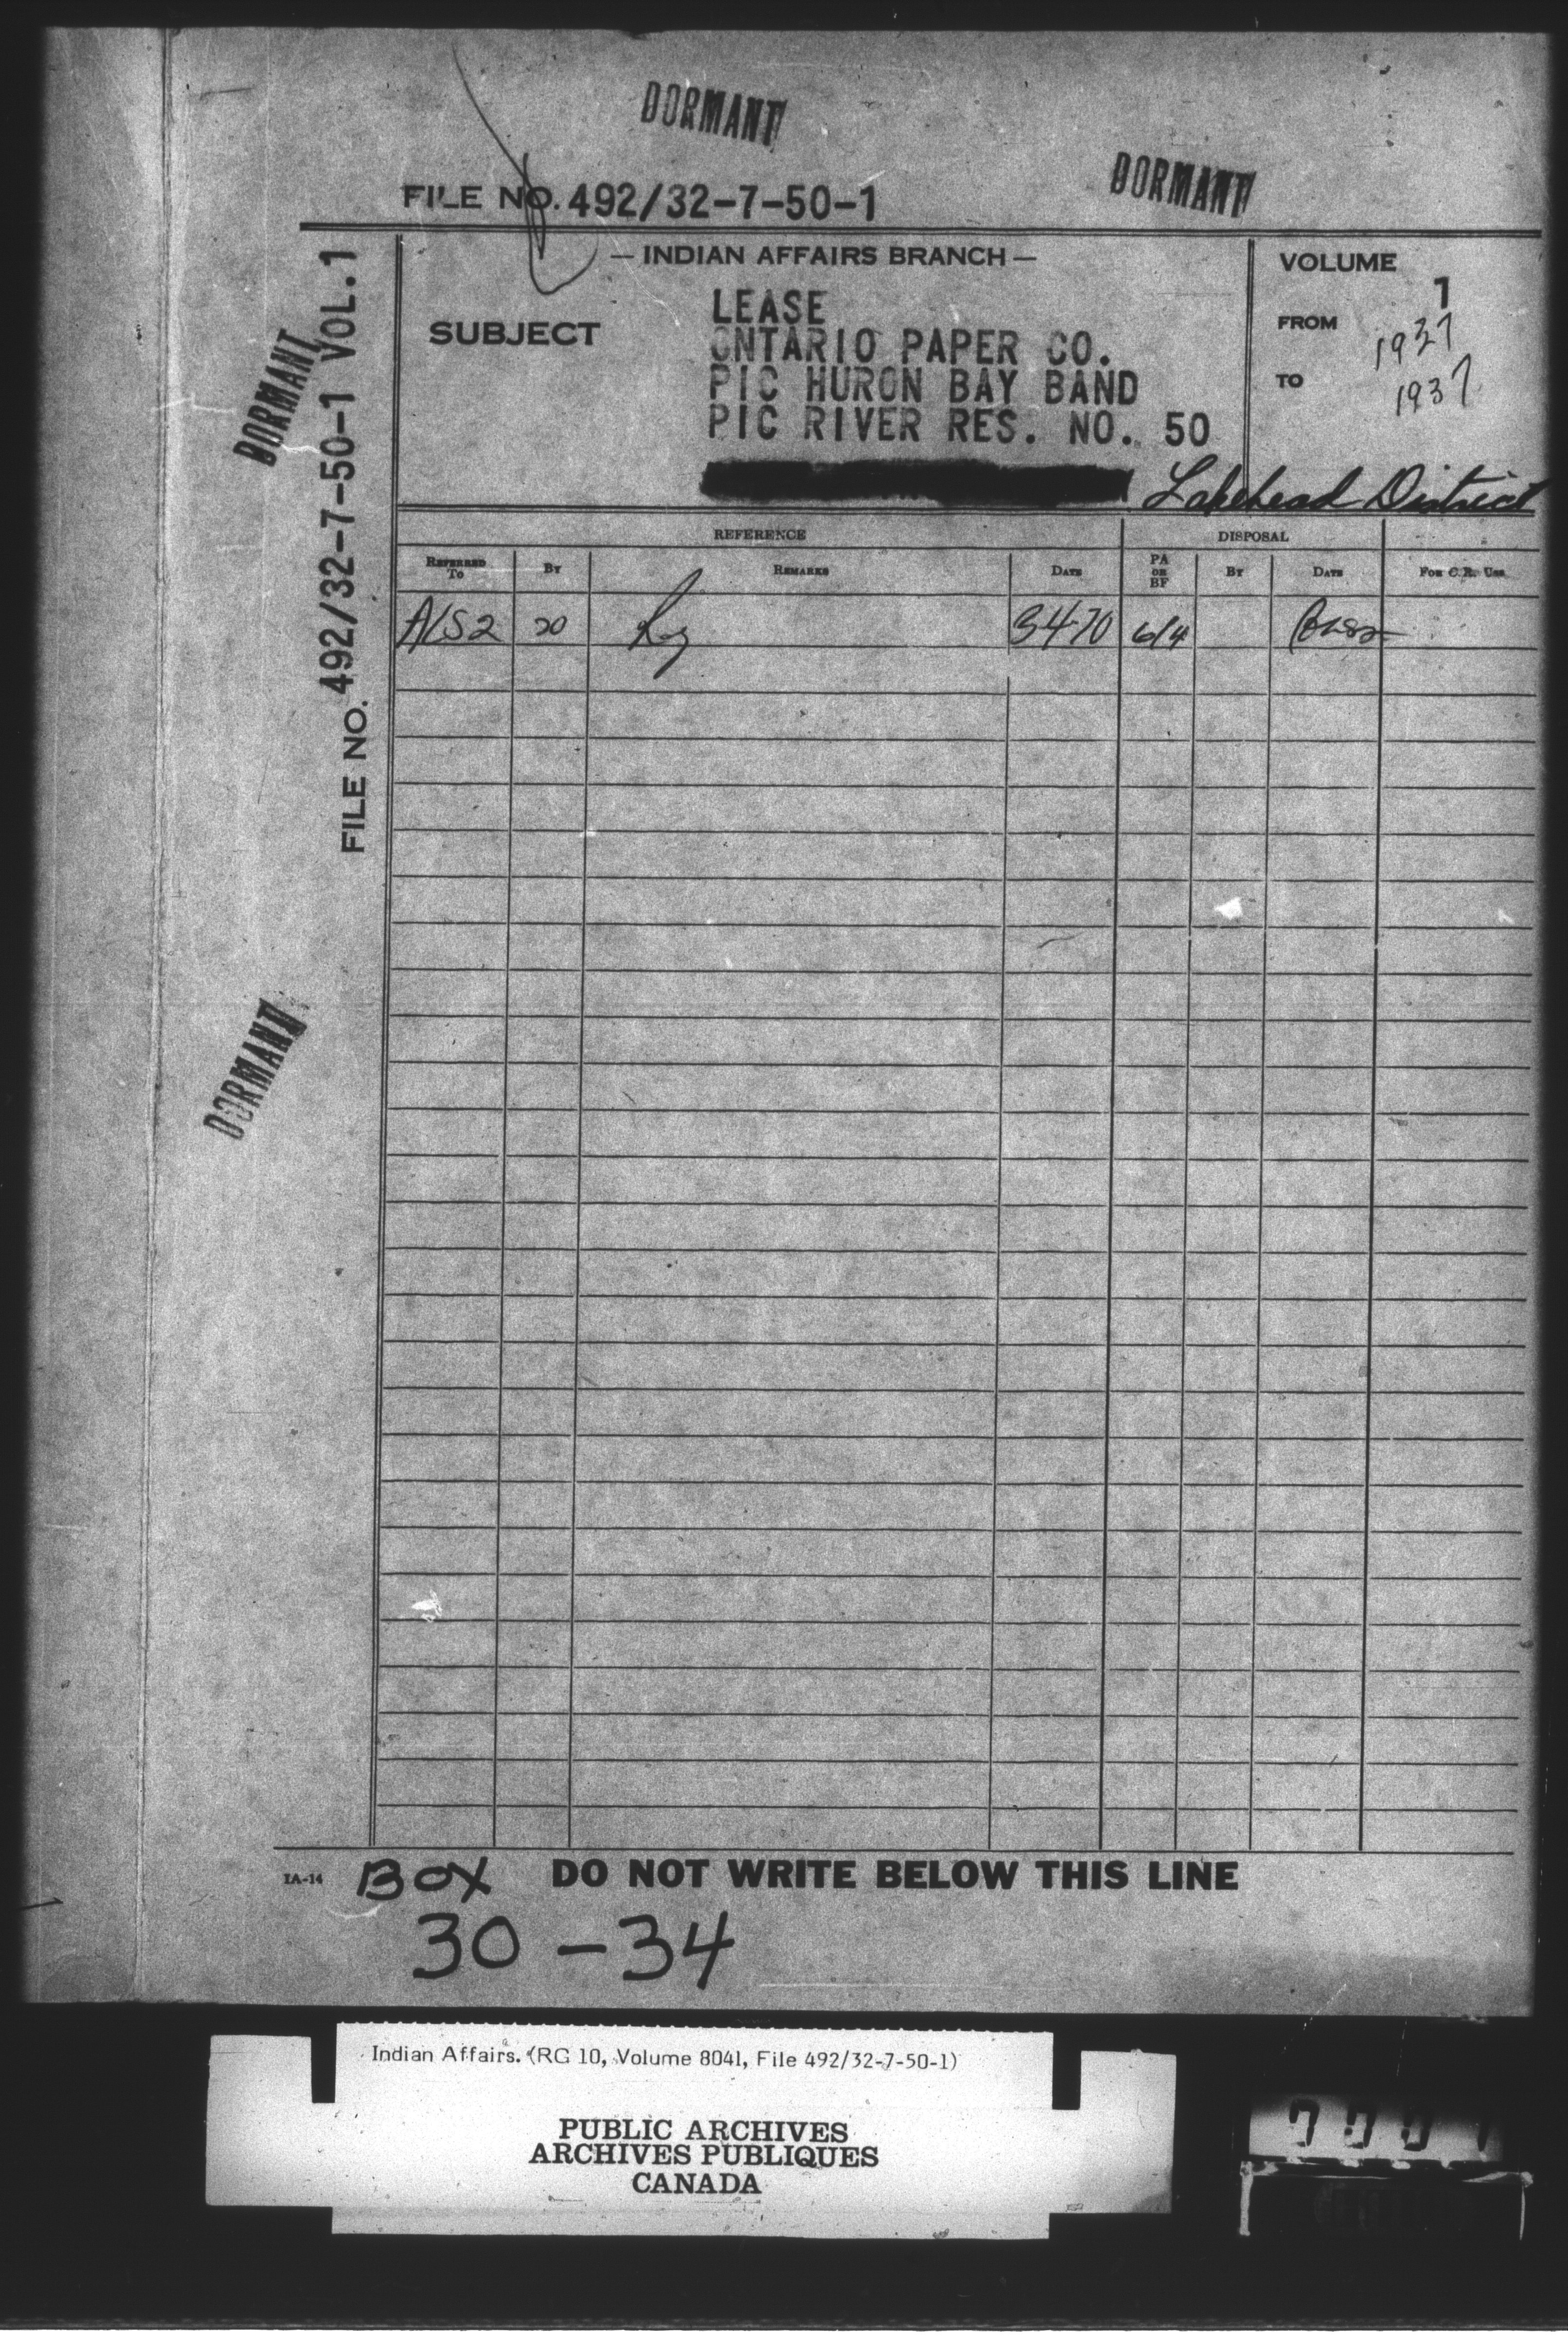 DORMANT
DORMANT
FILE NO. 492/32-7-50-1
— INDIAN AFFAIRS BRANCH —
SUBJECT
LEASE
ONTARIO PAPER CO.
PIC HURON BAY BAND
PIC RIVER RES. NO. 50
Lakehead District
VOLUME
1
FROM
1937
TO
1937
FILE NO. 492/32-7-50-1 VOL.1
DORMANT
DORMANT
REFERENCE
DISPOSAL
REFERRED TO
BY
REMARKS
DATE
PA OR BF
BY
DATE
FOR C.R. USE
A/S2 20 3470 6/4
IA-14
BOX
DO NOT WRITE BELOW THIS LINE
30 - 34
Indian Affairs. (RG 10, Volume 8041, File 492/32-7-50-1)
PUBLIC ARCHIVES
ARCHIVES PUBLIQUES
CANADA